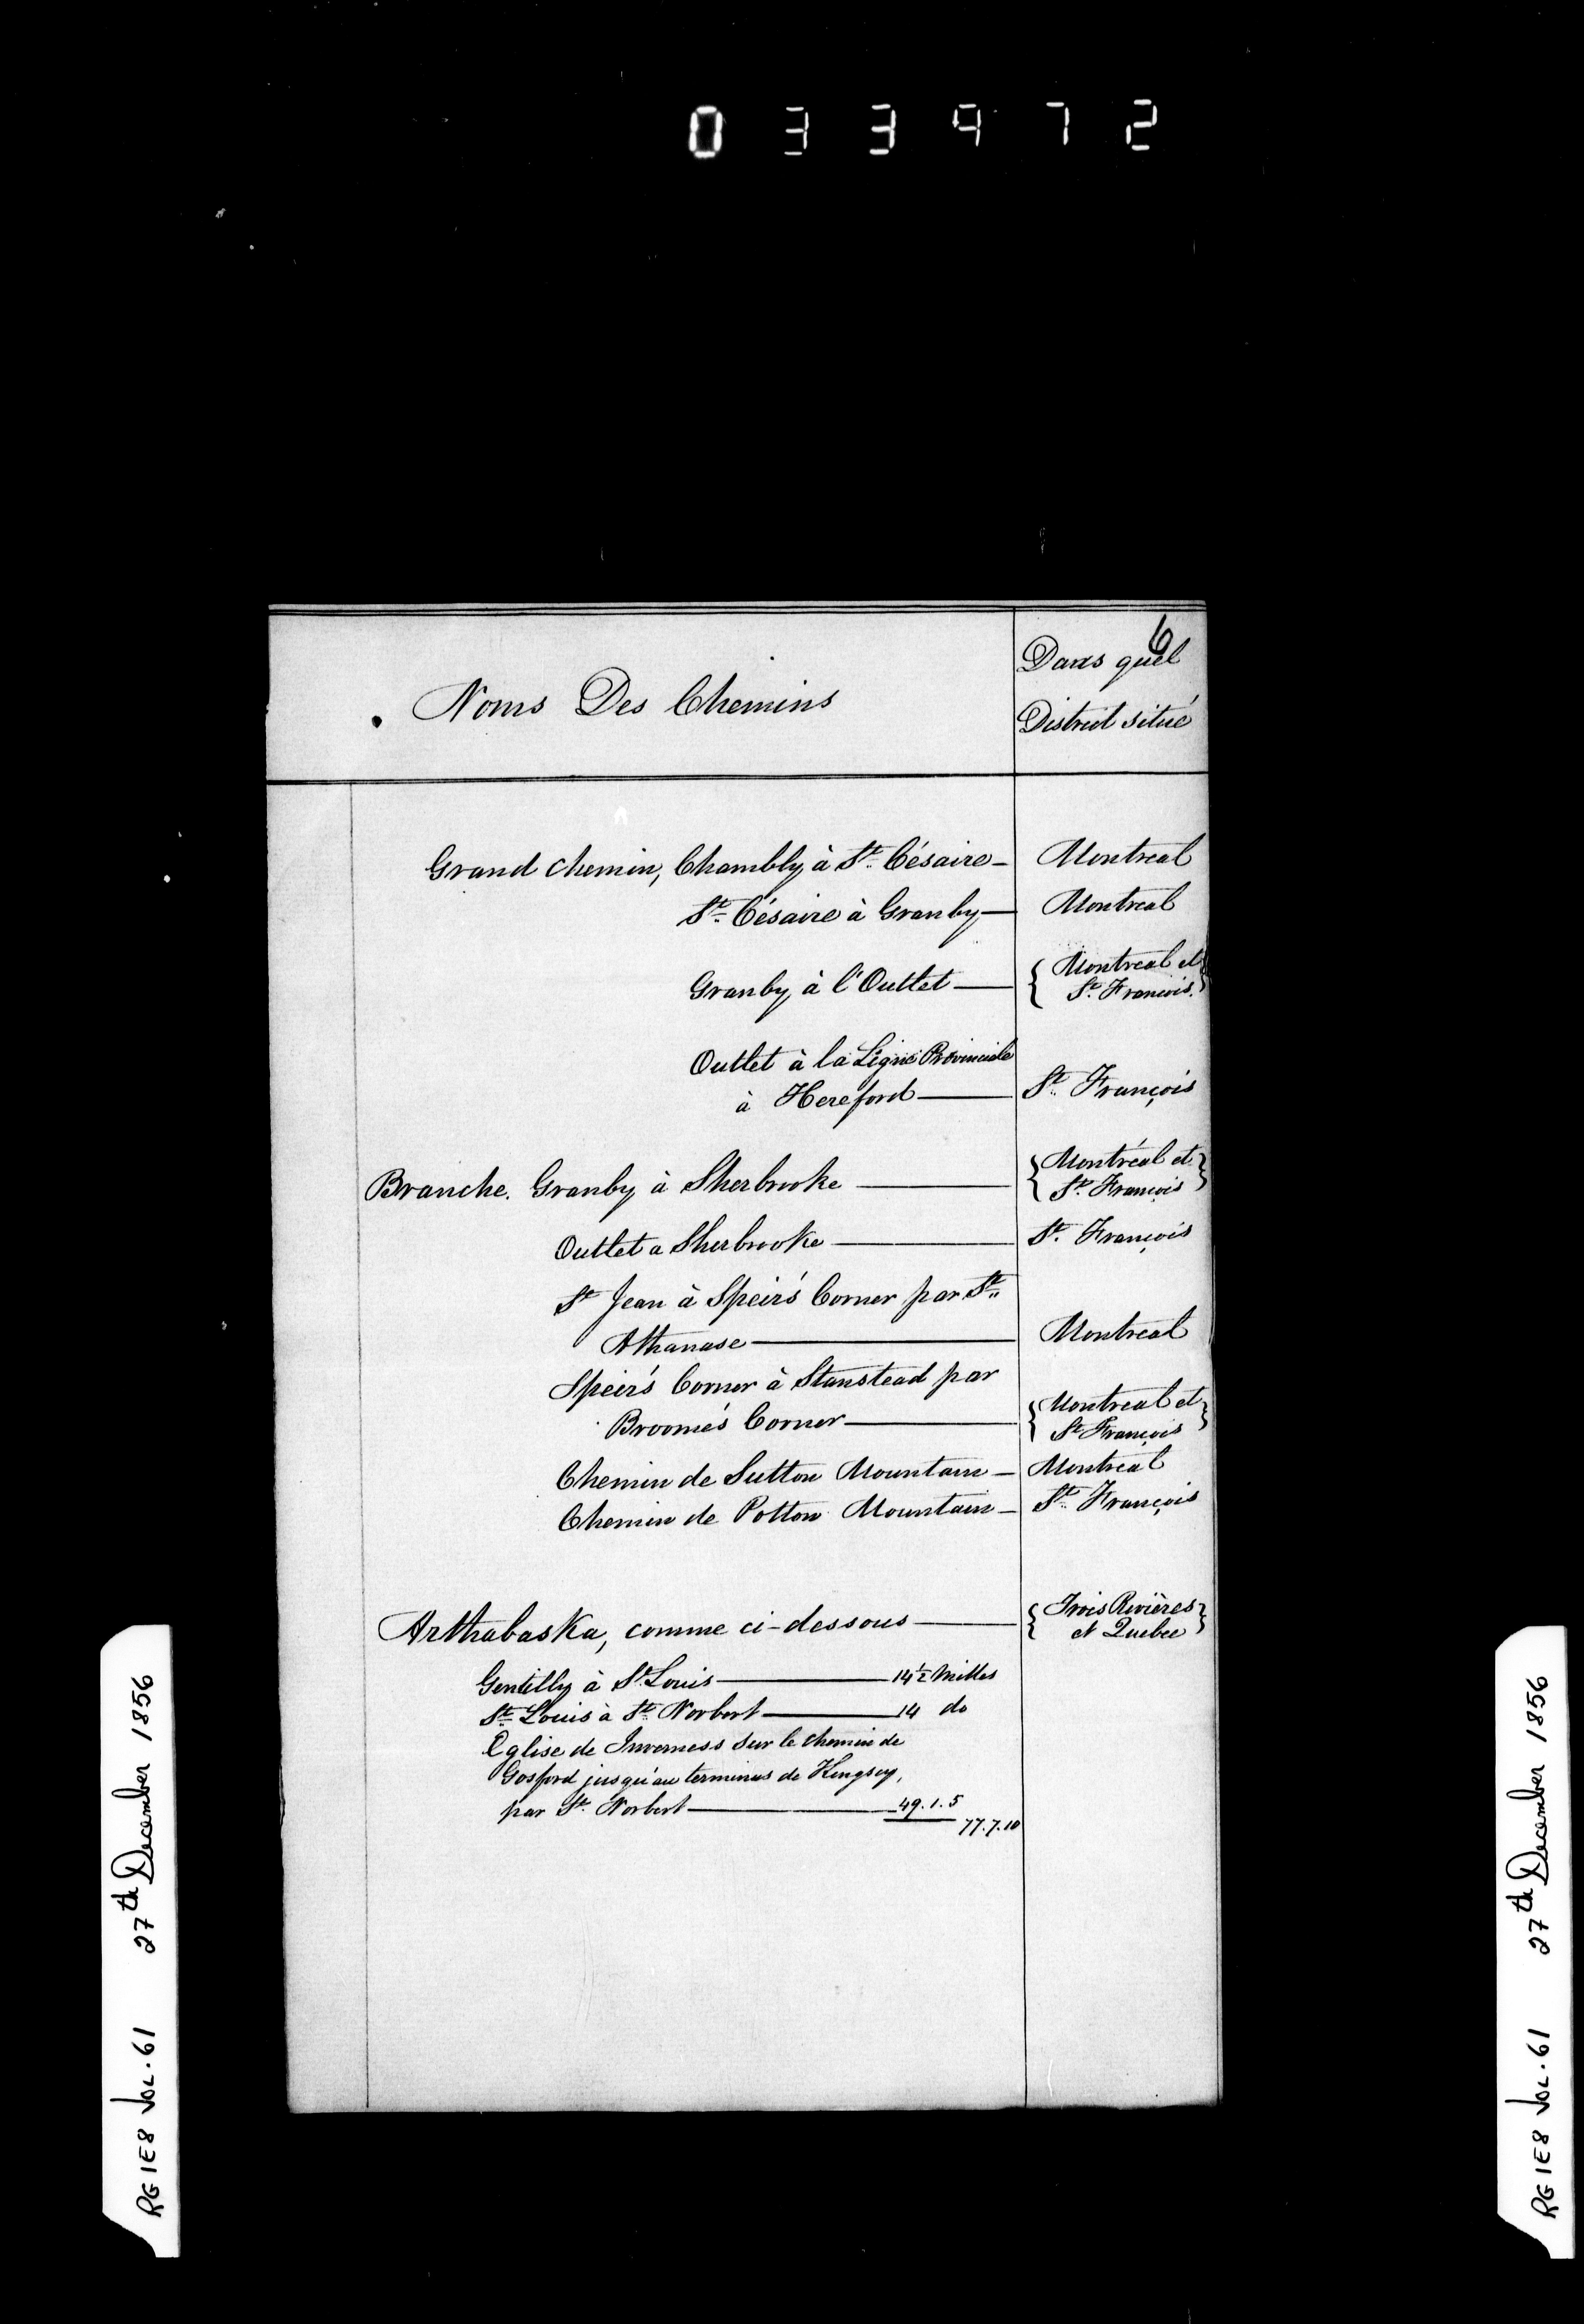 033972
6
Noms Des Chemins
Dans quel
District situé
Grand chemin, Chambly à St. Césaire — Montreal
St. Césaire à Granby — Montreal
Granby à l'Outlet — { Montreal et
St. François. }
Outlet à la Ligne Provinciale
à Hereford — St. François
Branche. Granby à Sherbrooke — { Montréal et
St. François }
Outlet a Sherbrooke — St. François
St Jean à Speir's Corner par St.
Athanase — Montreal
Speir's Corner à Stanstead par
Broome's Corner — { Montreal et
St. François }
Chemin de Sutton Mountain — Montreal
Chemin de Potton Mountain — St. François
Arthabaska, comme ci-dessous — { Trois Rivières
et Quebec }
Gentilly à St. Louis — 14 1/2 Milles
St. Louis à St. Norbert — 14 do
Eglise de Inverness sur le chemin de
Gosford jusqu'au terminus de Kingsey,
par St. Norbert — 49.1.5
77.7.10
RG 1E8 VOL. 61 27th December 1856
RG 1E8 VOL. 61 27th December 1856